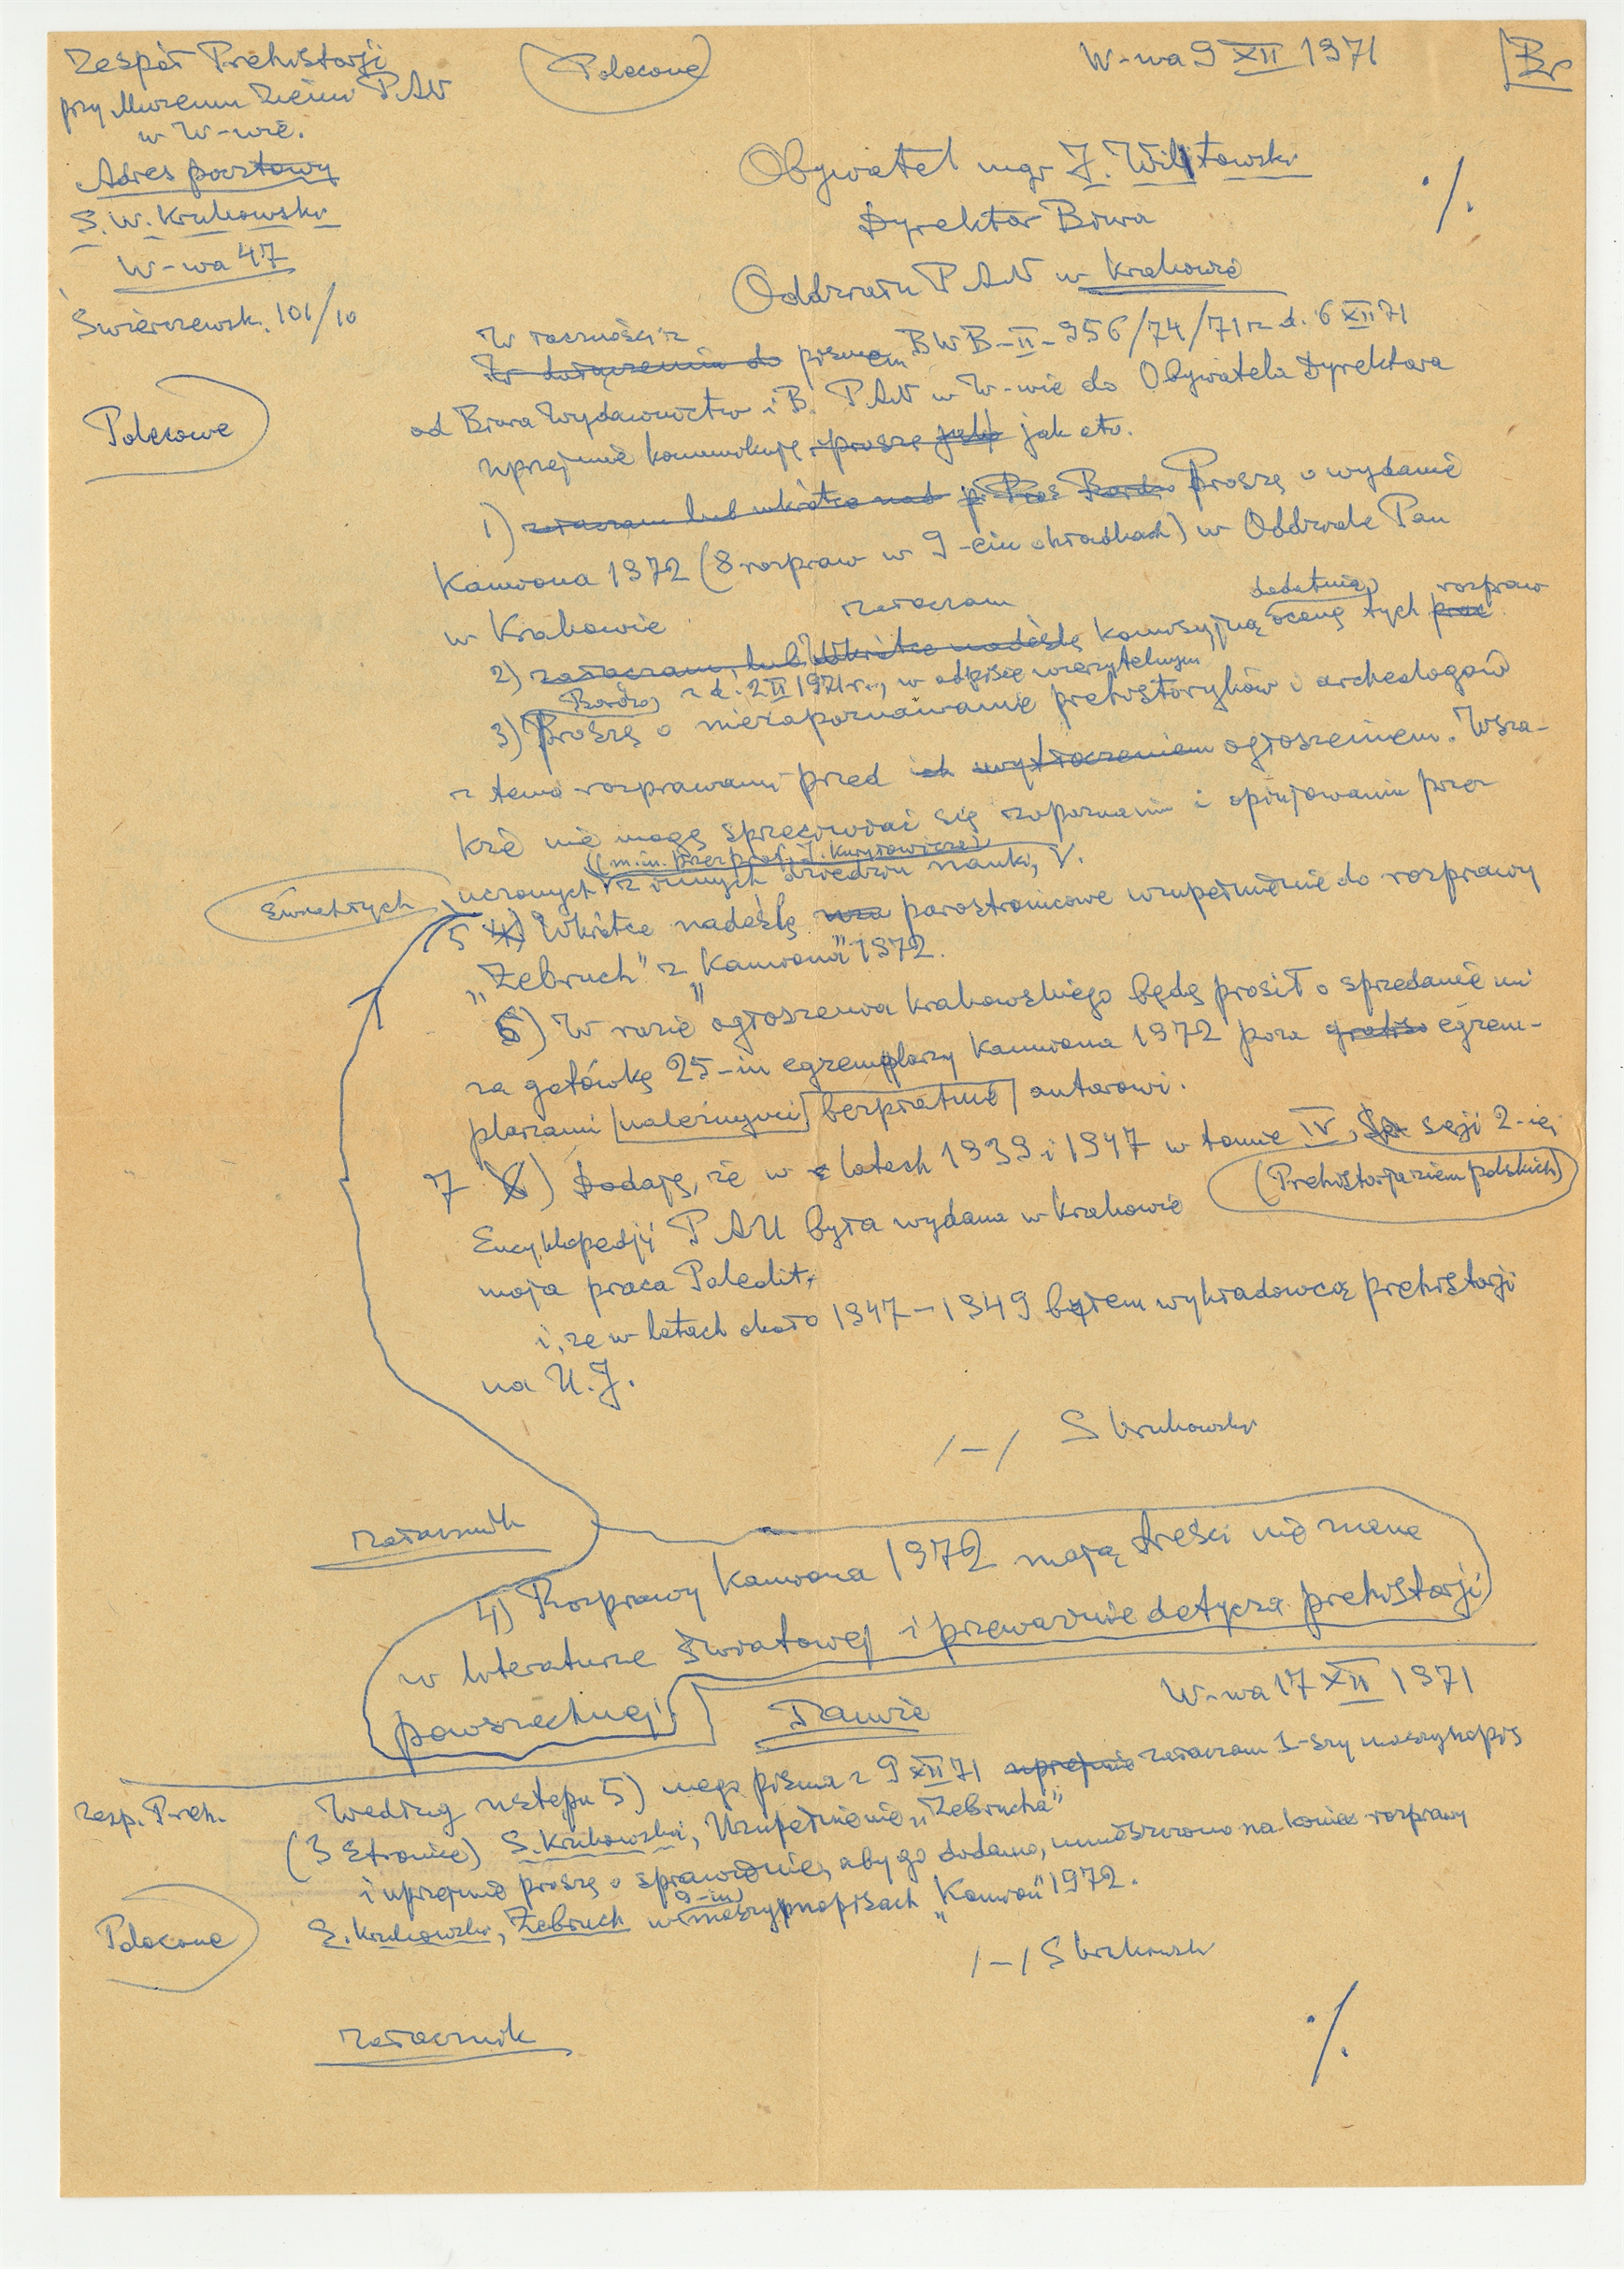 Zespół Prehistorji
przy Muzeum Ziemi PAN
w W-wie.
Adres pocztowy
S. W. Krukowski
W-wa 47
Świerczewsk. 101/10
(Polecone)
W-wa 9 XII 1971
Obywatel mgr J. Witowski
Dyrektor Biura
Oddziału PAN w Krakowie
W łączności z
W dołączeniu do pismem BWB-II-956/74/71 z d. 6 XII 71
Polecone
od Biura Wydawnictw i B. PAN w W-wie do Obywatela Dyrektora
uprzejmie komunikuję, proszę jak oto.
1) załączam lub wkrótce nad Proszę o wydanie
Kamiona 1972 (8 rozpraw w 9-ciu okładkach) w Oddziale Pan
w Krakowie.
załączam
dodatnią
rozpraw
2) załączam, lub wkrótce nadeślę komisyjną ocenę tych prac
z d. 2 II 1971 r., w odpisie wierzytelnym
Bardzo
3) Proszę o niezapoznawanie prehistoryków i archeologów
z temi rozprawami przed ich wytłoczeniem ogłoszeniem. Wsza-
kże nie mogę sprzeciwiać się zapoznaniu i opinjowaniu przez
(m.in. przez prof. J. Kuryłowicza)
Ewentlnych uczonych z innych dziedzin nauki, V.
5 4) Wkrótce nadeślę parostronicowe uzupełnienie do rozprawy
„Żebruch” z „Kamiona” 1972.
6) W razie ogłoszenia krakowskiego będę prosił o sprzedanie mi
za gotówkę 25-iu egzemplarzy Kamiona 1972 poza gratis egzem-
plarzami należnymi bezpłatnie autorowi.
7 6) Dodaję, że w latach 1939 i 1947 w tomie IV, seji 2-iej
(Prehistorja ziem polskich)
Encyklopedji PAU była wydana w Krakowie
moja praca Paleolit,
i, że w latach około 1947–1949 byłem wykładowcą prehistorji
na U.J.
/–/ S Krukowski
załącznik
4) Rozprawy Kamiona 1972 mają treści nie znane
w literaturze światowej i przeważnie dotyczą prehistorji
powszechnej
Tamże
W-wa 17 XII 1971
Zesp. Preh.
Według ustępu 5) mego pisma z 9 XII 71 uprzejmie załączam 1-szy maszynopis
(3 stronice) S. Krukowski, Uzupełnienie „Żebrucha”
i uprzejmie proszę o sprawdzenie, aby go dodano, umieszczono na końcu rozprawy
9-iu
S. Krukowski, Żebruch w maszynopisach „Kamion” 1972.
Polecone
/–/ S Krukowski
załącznik